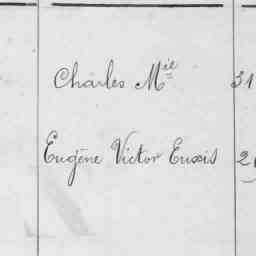 Charles Mie 31
Eugène Victor 2